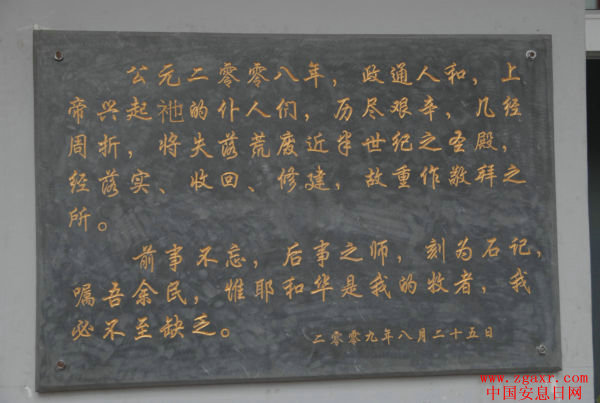 公元二零零八年，政通人和，上
帝兴起祂的仆人们，历尽艰辛，几经
周折，将失落荒废近半世纪之圣殿，
经落实、收回、修建，故重作敬拜之
所。
前事不忘，后事之师，刻为石记，
嘱吾余民，惟耶和华是我的牧者，我
必不至缺乏。
二零零九年八月二十五日
www.zgaxr.com
中国安息日网